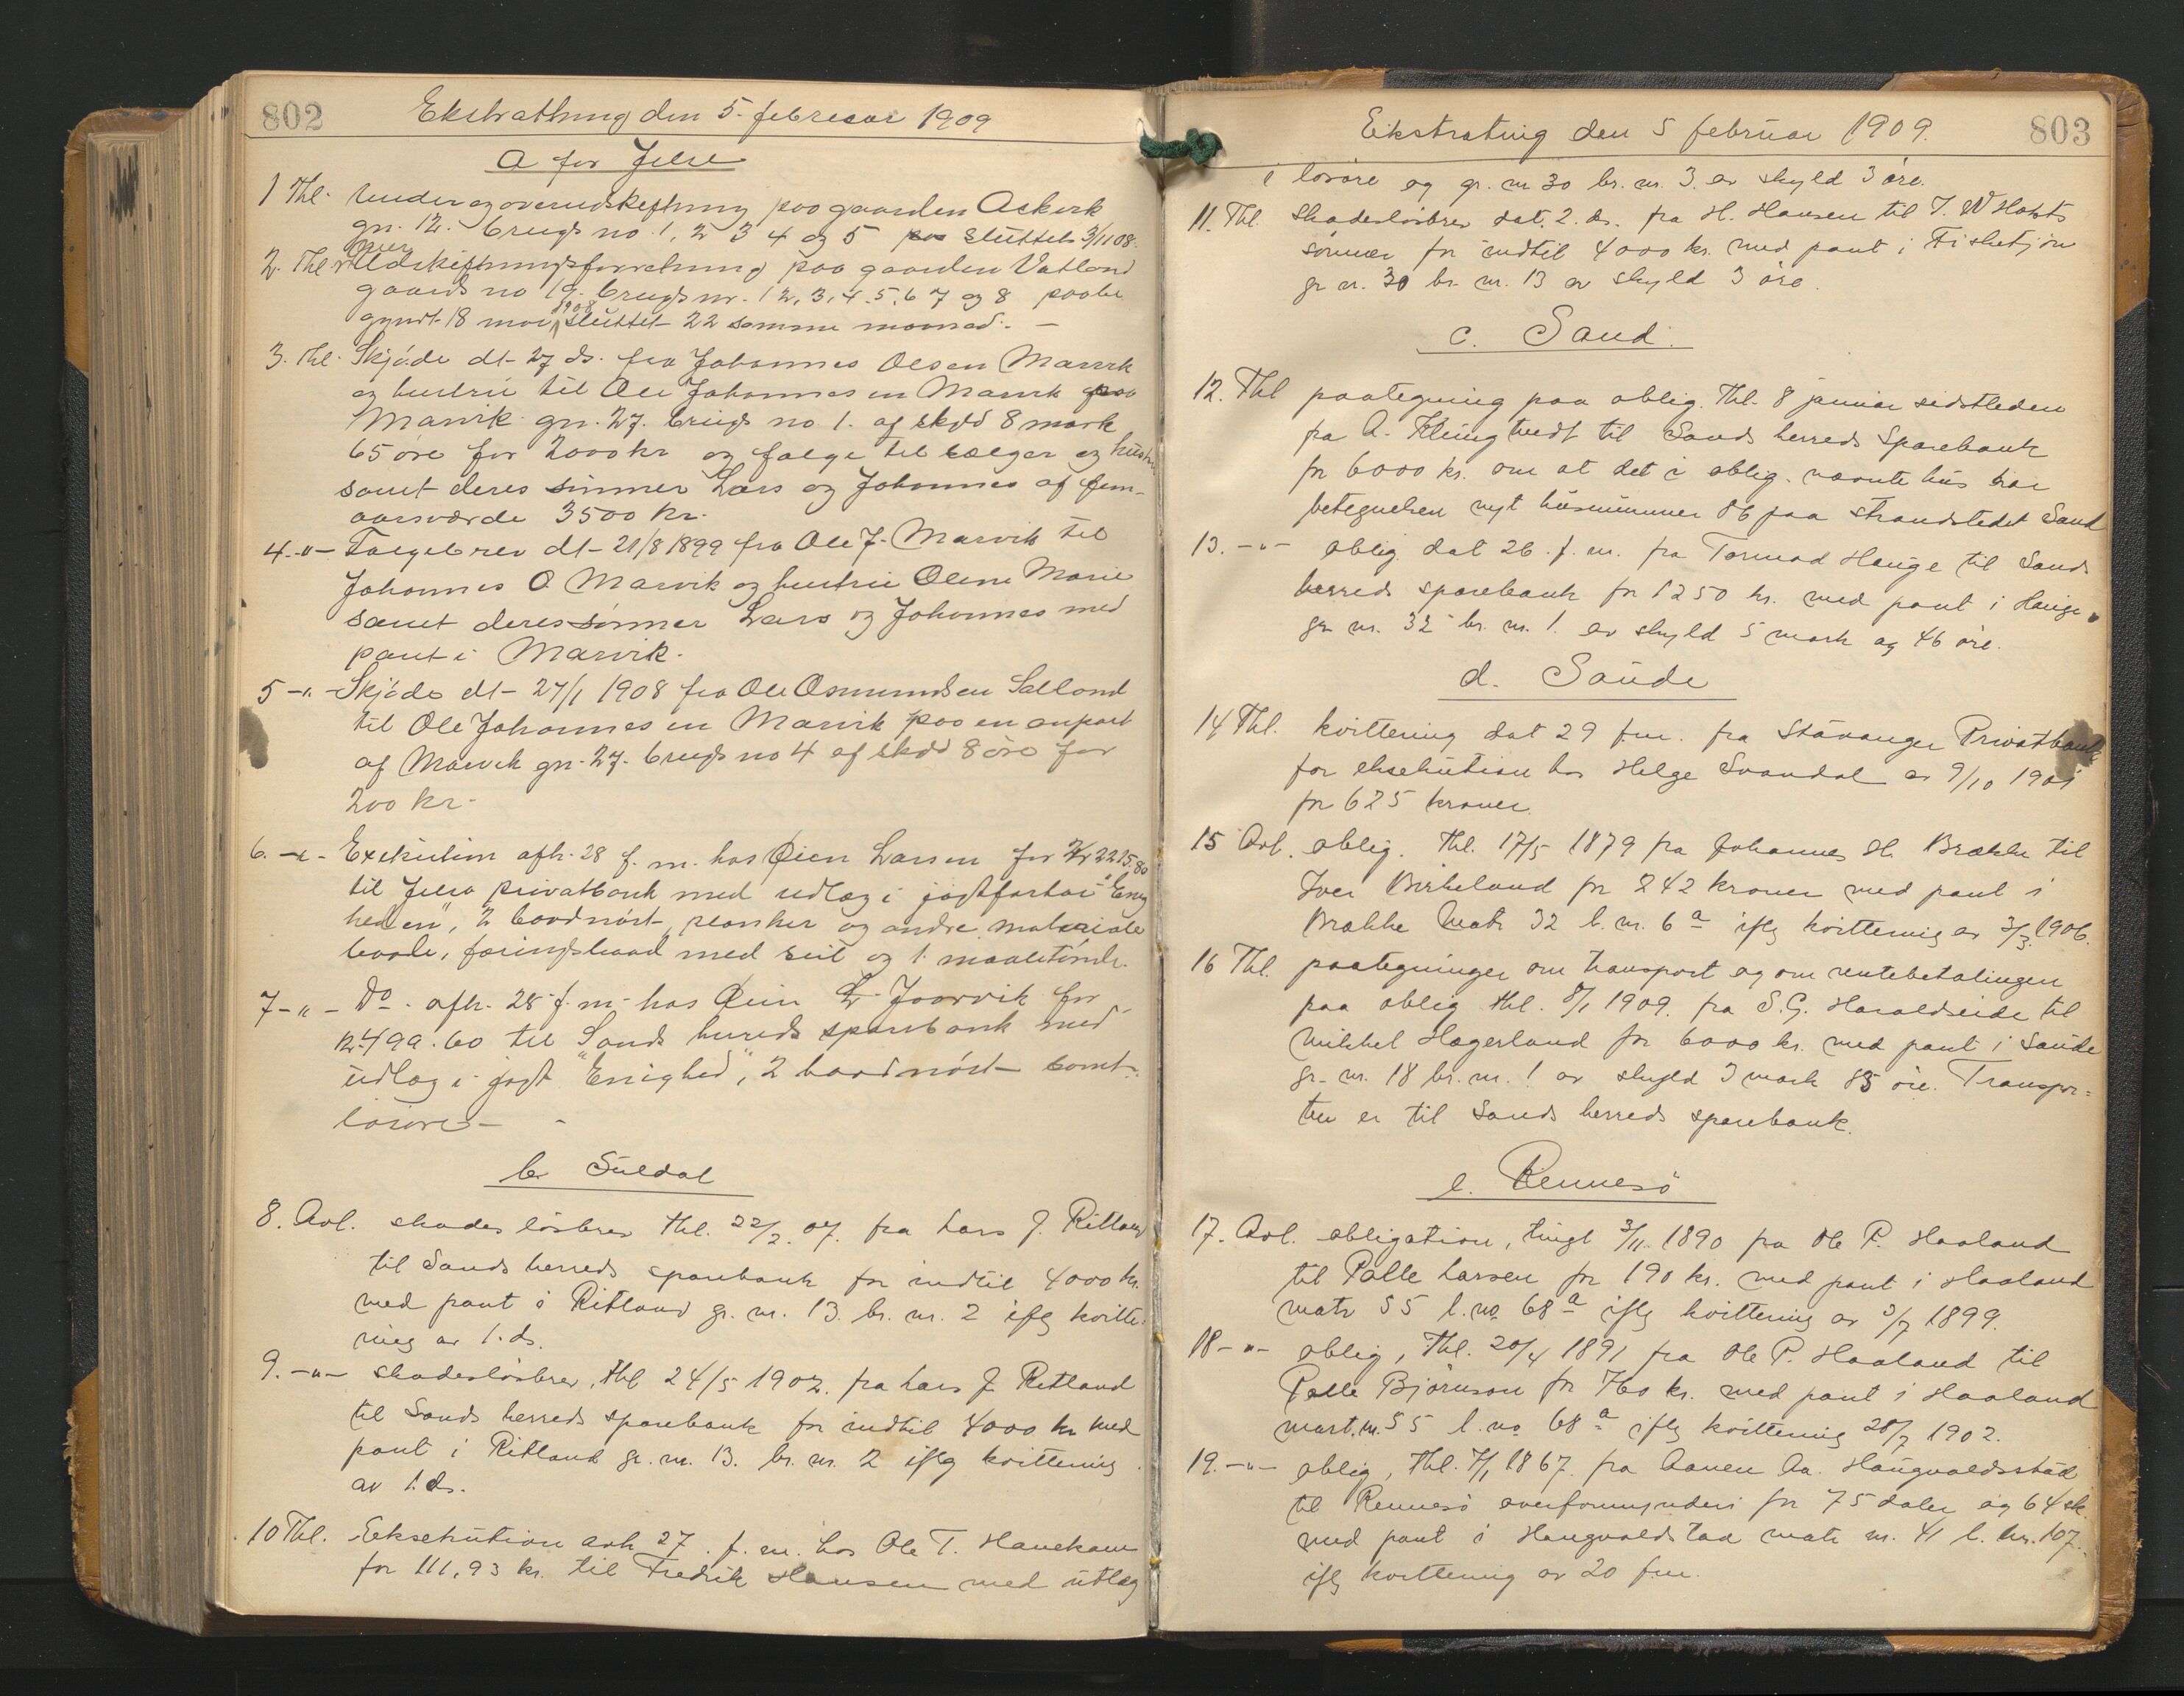 802
Ekstrathing den 5. februar 1909
a for Jelse
1 Thl. Under og overudskiftning paa gaarden Askvik
gn. 12. brugs no. 1, 2 3 4 og 5 sluttet 3/11 08.
2. Thl. Udskiftningsforretning paa gaarden Vatland
gaards no 19. brugs nr. 1 2, 3, 4. 5. 6 7 og 8 paabe
gyndt 18 mai 1908 sluttet 22 samme maaned. —
3. Thl. Skjøde dt 27 ds. fra Johannes Olsen Marvik
og hustru til Ole Johannesen Marvik paa
Marvik gn. 27. brugs no 1. af skyld 8 mark
65 øre for 2000 kr og følge til sælger og hustru
samt deres sønner Lars og Johannes af fem-
aarsværde 3500 kr.
4. -"- Følgebrev dt 21/8 1899 fra Ole J. Marvik til
Johannes O Marvik og hustru Olene Marie
samt deres sønner Lars og Johannes med
pant i Marvik.
5 -"- Skjøde dt 27/1 1908 fra Ole Osmundsen Salland
til Ole Johannesen Marvik paa en anpart
af Marvik gn. 27. brugs no 4 af skyld 8 øre for
200 kr.
6. -"- Exekution afh. 28 f. m. hos Øien Larsen for kr 2215.80
til Jelsa privatbank med udlæg i jagtfartøi "Enig
heden", 2 baadnøst, planker og andre materiale
baade, føringsbaad med seil og 1 maaletønde.
7 -"- Do. afh. 28 f. m. hos Øien L. Joarvik for
kr. 499.60 til Sands herreds sparebank med
udlæg i jagt "Enighed", 2 baadnøst samt
løsøre —
b. Suldal
8. Avl. skadesløsbrev thl. 22/2. 07. fra Lars J. Ritland
til Sands herreds sparebank for indtil 4000 kr.
med pant i Ritland gr. nr. 13. br. nr. 2 iflg kvitte-
ring av 1. ds.
9. -"- skadesløsbrev, thl 24/5 1902. fra Lars J. Ritland
til Sands herreds sparebank for indtil 4000 kr med
pant i Ritland gr. nr. 13. br. nr. 2 iflg kvittering
av 1. ds.
10 Thl. Eeksekution avh 27. f. m. hos Ole T. Hanekam
for 111,93 kr. til Fredrik Hansen med utlæg
803
Eikstrating den 5 februar 1909.
i løsøre og gr. nr 30 br. nr. 3. av skyld 3 øre.
11. Thl. Skadesløsbrev dat. 2. ds. fra H. Hansen til T. W Holsts
sønner for indtil 4000 kr. med pant i Fisketjøn
gr nr. 30 br. nr. 13 av skyld 3 øre.
c. Sand.
12. Thl paategning paa oblig. thl. 8 januar sidstleden
fra A. Klungtvedt til Sands herreds Sparebank
for 6000 kr. om at det i oblig. nævnte hus har
betegnelsen nyt husnummer 86 paa strandstedet Sand
13. -"- oblig dat 26. f. m. fra Tormod Hauge til Sands
herreds sparebank for 1250 kr. med pant i Hauge
gr nr. 32 br. nr. 1. av skyld 5 mark og 46 øre.
d. Saude
14 Thl. kvittering dat 29 f.m. fra Stavanger Privatbank
for eksekution hos Helge Svandal av 9/10 1901
for 625 kroner.
15 Avl. oblig. thl. 17/5 1879 fra Johannes H. Brække til
Iver Birkeland for 242 kroner med pant i
Brække Matr 32 l. nr. 6 a iflg kvittering av 3/3. 1906.
16 Thl. paategninger om transport og om rentebetalingen
paa oblig thl. 8/1 1909. fra S. G. Haraldseide til
Mikkel Hagerland for 6000 kr. med pant i Saude
gr. nr. 18 br. nr. 1 av skyld 3 mark 85 øre. Transpor=
ten er til Sands herreds sparebank.
e. Rennesö
17. Avl. obligation, tingl 3/11. 1890 fra Ole P. Haaland
til Palle Larsen for 190 kr. med pant i Haaland
matr 55 l. no 68 a iflg kvittering av 3/7 1899.
18 -"- oblig, thl. 20/4 1891 fra Ole P. Haaland til
Palle Bjørnson for 760 kr. med pant i Haaland
mart. nr. 55 l. no 68 a iflg kvittering 28/7 1902.
19. -"- oblig, thl. 7/1 1867. fra Aanen Aa. Haugvaldsstad
til Rennesö overformynderi for 75 daler og 64 sk.
med pant i Haugvaldstad matr nr. 41 l. nr. 107.
iflg kvittering av 20 f.m.